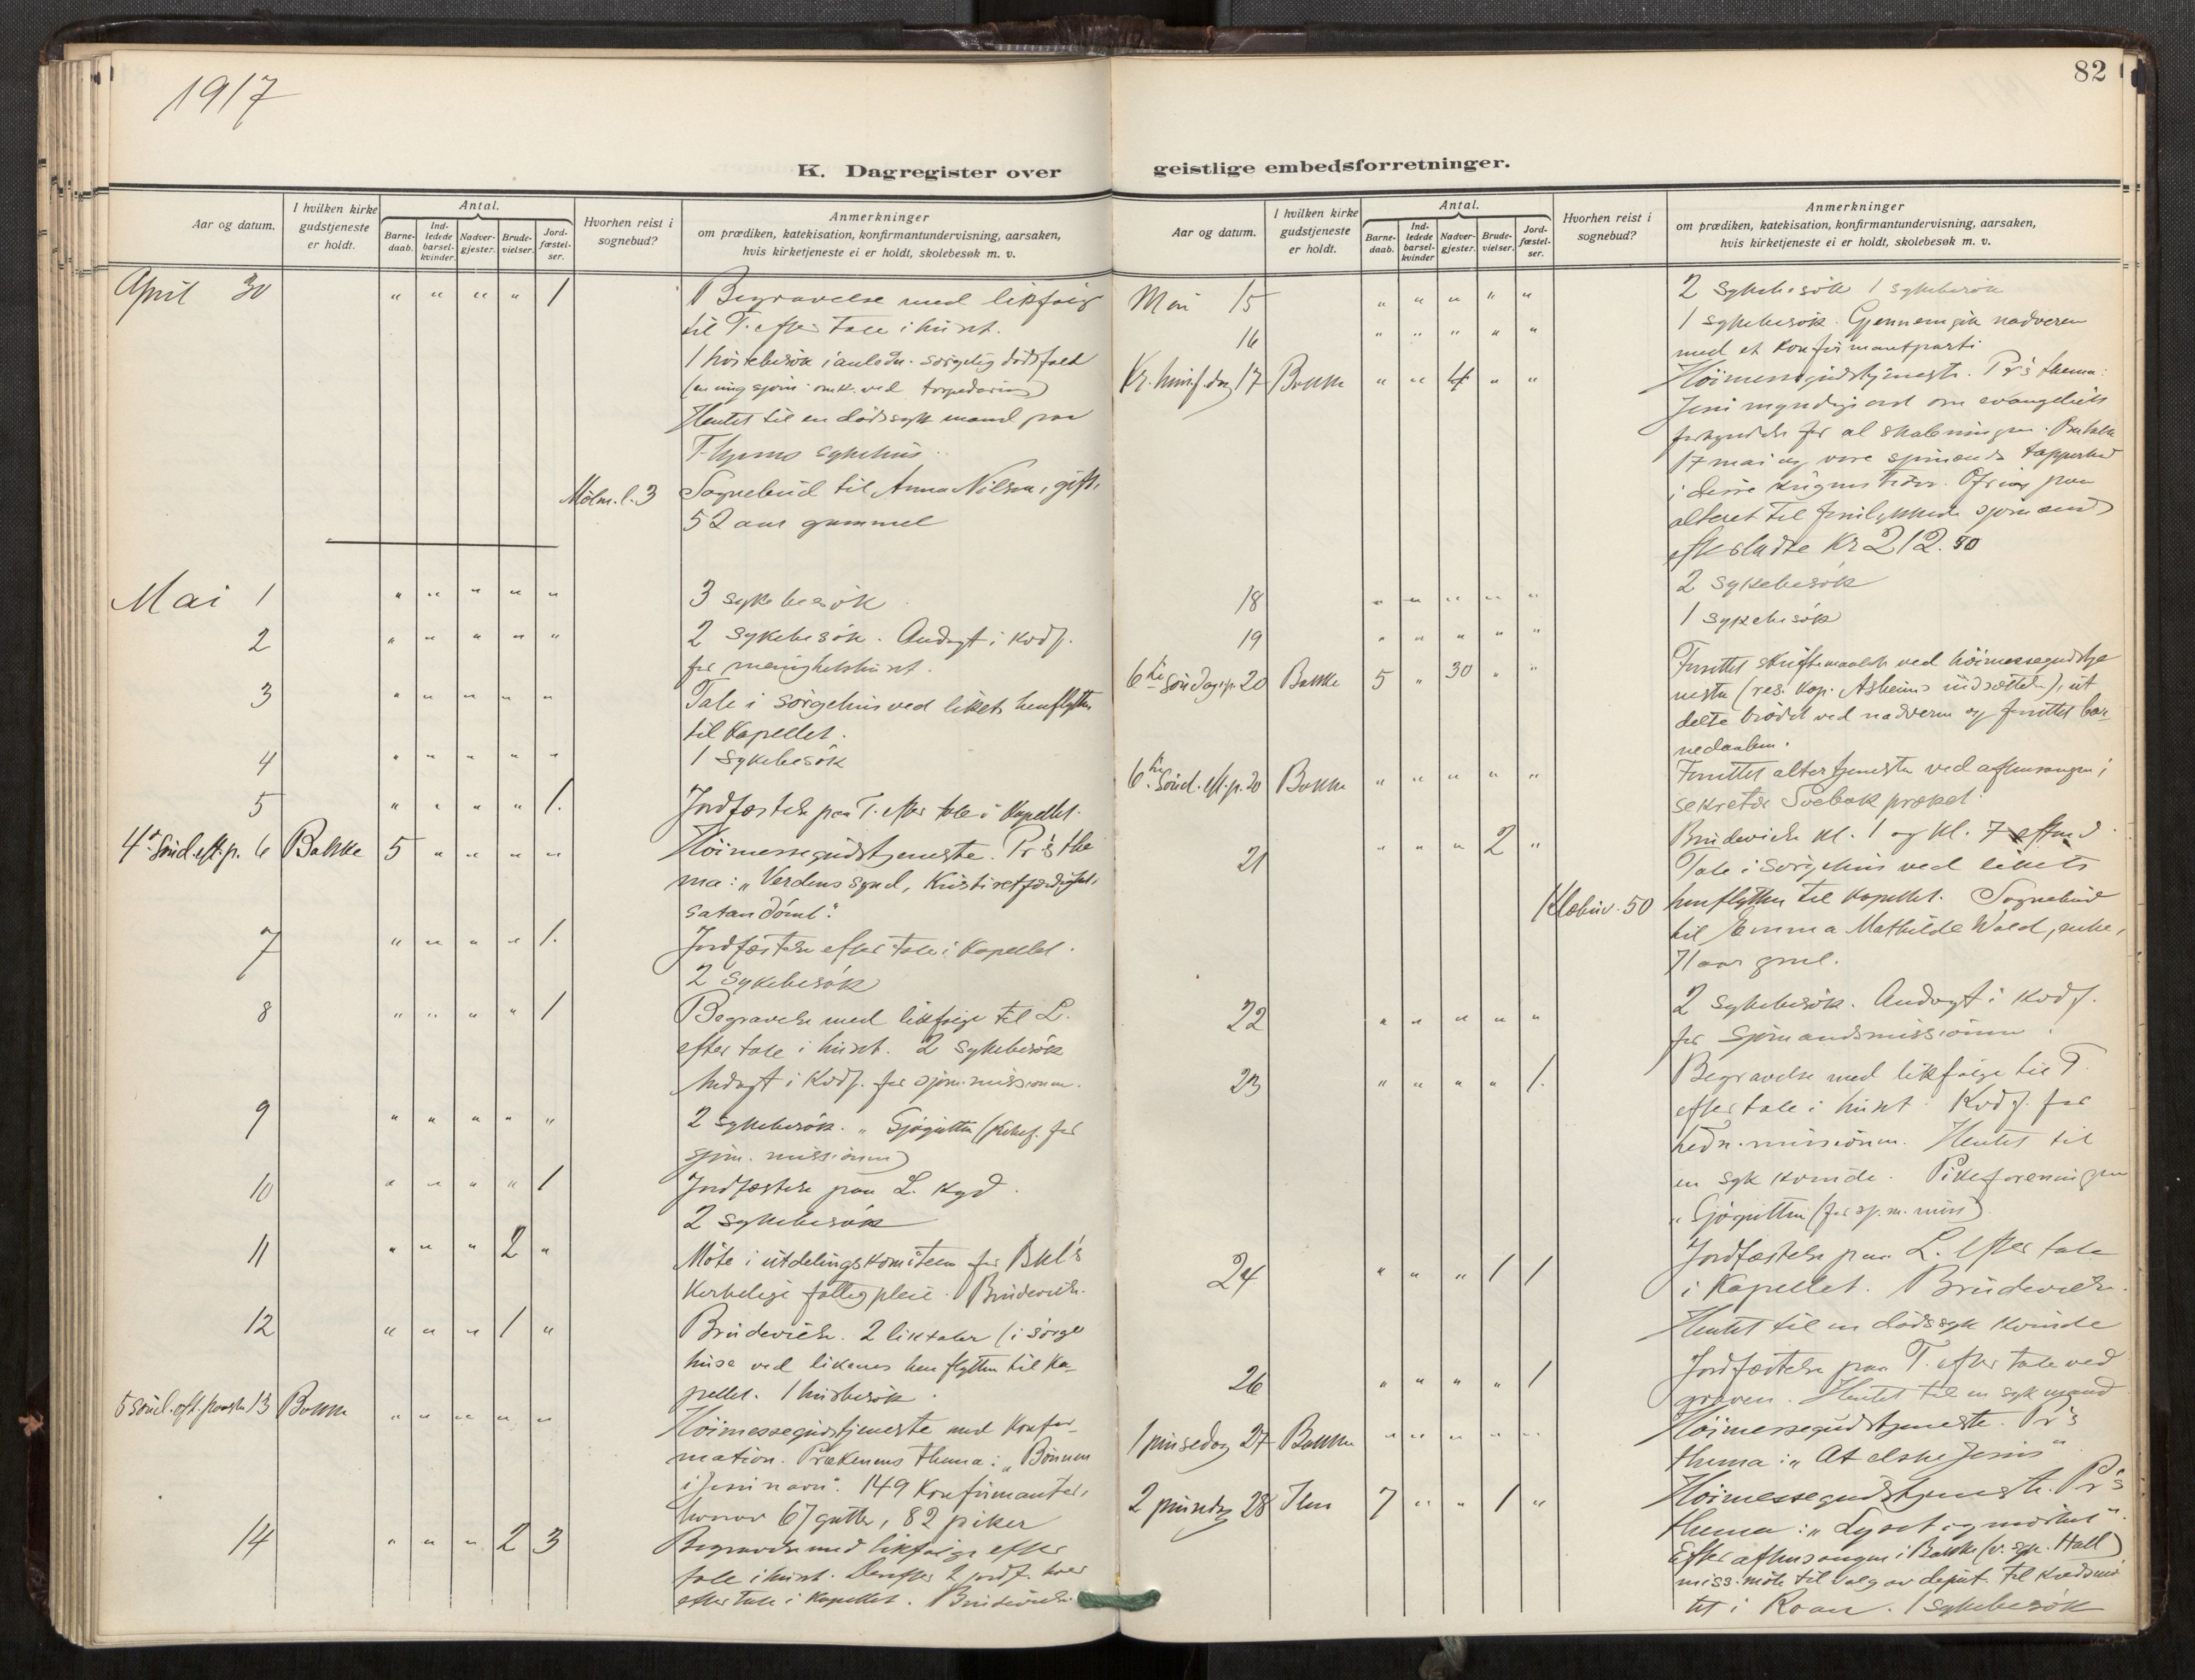 1917
82
K. Dagregister over geistlige embedsforretninger.
Aar og datum.
I hvilken kirke gudstjeneste er holdt.
Antal.
Barnedaab.
Indledede barselkvinder.
Nadvergjester.
Brudevielser.
Jordfæstelser.
Hvorhen reist i sognebud?
Anmerkninger
om prædiken, katekisation, konfirmantundervisning, aarsaken,
hvis kirketjeneste ei er holdt, skolebesøk m. v.
April 30 " " " " 1 Begravelse med likfølge
til T. efter tale i huset.
i anledn. sørgelig dødsfald
torpedering)
Hentet til en dødssyk mand paa
T-hjems sykehus.
Mølm. l. 3 Sognebud til Anna Nilsen, gift,
52 aar gammel
Mai 1 " " " " " 3 sykebesøk
2 " " " " " 2 sykebesøk. Andagt i kvdf.
for menighetshuset.
3 " " " " " Tale i sørgehus ved likets henflytten
til Kapellet.
4 " " " " " 1 Sykebesøk
5 " " " " 1. Jordfæstelse paa T. efter tale i Kapellet.
4. sønd. eft. p. 6 Bakke 5 " " " " Høimessegudstjeneste. Pr's the
ma: "Verdens synd, Kristi retfærdighet,
satan dømt".
7 " " " " 1. Jordfæstelse efter tale i Kapellet.
2 Sykebesøk
8 " " " " 1 Begravelse med likfølge til L.
efter tale i huset. 2 sykebesøk
Andagt i Kvdf. for sjøm. missionen.
9 " " " " " 2 sykebesøk. "Sjøgutten (Pikef. for
sjøm. missionen)
10 " " " " 1 Jordfæstelse paa L. kgd.
2 sykebesøk
11 " " " 2 " Møte i utdelingskomiteen for Bkl's
kirkelige fattigpleie. Brudevielse.
12 " " " 1 " Brudevielse. 2 liktaler (i sørge
huse ved likenes henflytten til Ka-
pellet. 1 husbesøk.
5 sønd. eft. paaske 13 Bakke " " " " " Høimessegudstjeneste med Konfir-
mation. Prækenens thema: "Bønnen
i Jesu navn". 149 Konfirmanter,
hvorav 67 gutter, 82 piker
14 " " " 2 3 Begravelse med likfølge efter
tale i huset. Derefter 2 jordf. hver
efter tale i Kapellet. Brudevielse.
Aar og datum.
I hvilken kirke gudstjeneste er holdt.
Antal.
Barnedaab.
Indledede barselkvinder
Nadvergjester.
Brudevielser.
Jordfæstelser.
Hvorhen reist i sognebud?
Anmerkninger
om prædiken, katekisation, konfirmantundervisning, aarsaken,
hvis kirketjeneste ei er holdt, skolebesøk m. v.
Mai 15 " " " " " 2 sykebesøk 1 sykebesøk
16 " " " " " 1 sykebesøk. Gjennemgik nadveren
med et konfirmantparti
Kr. himlf. dag 17 Bakke " " 4 " " Høimessegudstjeneste. Pr's thema:
Jesu myndige ord om evangeliets
forkyndelse for al skabningen.
17 mai og vore sjømænds tapperhet
i disse krigens tider. Ofring paa
alteret til forulykkede sjømænds
efterladte Kr 212.50
18 " " " " " 2 sykebesøk
19 " " " " " 1 sykebesøk
6te søndag e. p. 20 Bakke 5 " 30 " " Forrettet skriftemaalet ved høimessegudstje
nesten (res. kap. Asheims indsættelse), ut
delte brødet ved nadveren og forrettet bar-
nedaaben.
6te sønd. eft. p. 20 Bakke " " " " " Forrettet altertjenesten ved aftensangen;
sekretær Svebak præket
21 " " " 2 " Brudevielse kl. 1 og kl. 7 efterm.
Tale i sørgehus ved likets
Klæbuv. 50 henflytten til Kapellet. Sognebud
til Emma Mathilde Wold, enke,
71 aar gml.
22 " " " " " 2 sykebesøk. Andagt i Kvdf.
for sjømandsmissionen.
23 " " " " 1. Begravelse med likfølge til T.
efter tale i huset. Kvdf. for
hedn. missionen. Hentet til
en syk kvinde. Pikeforeningen
"Sjøgutten (for sj. m. miss)
24 " " " 1 1 Jordfæstelse paa L. efter tale
i Kapellet. Brudevielse.
Hentet til en dødssyk kvinde
26 " " " " 1 Jordfæstelse paa T. efter tale ved
graven. Hentet til en syk mand
1 pinsedag 27 Bakke " " " " " Høimessegudstjeneste. Pr's
thema: "At elske Jesus"
2 pinsedag 28 Ilen 7 " " 1 " Høimessegudstjeneste. Pr's
thema: "Lyset og mørket".
Efter aftensangen i Bakke (v. sgp. Hall)
miss. møte til valg av deput. til Kredsmø
tet i Roan. 1 sykebesøk